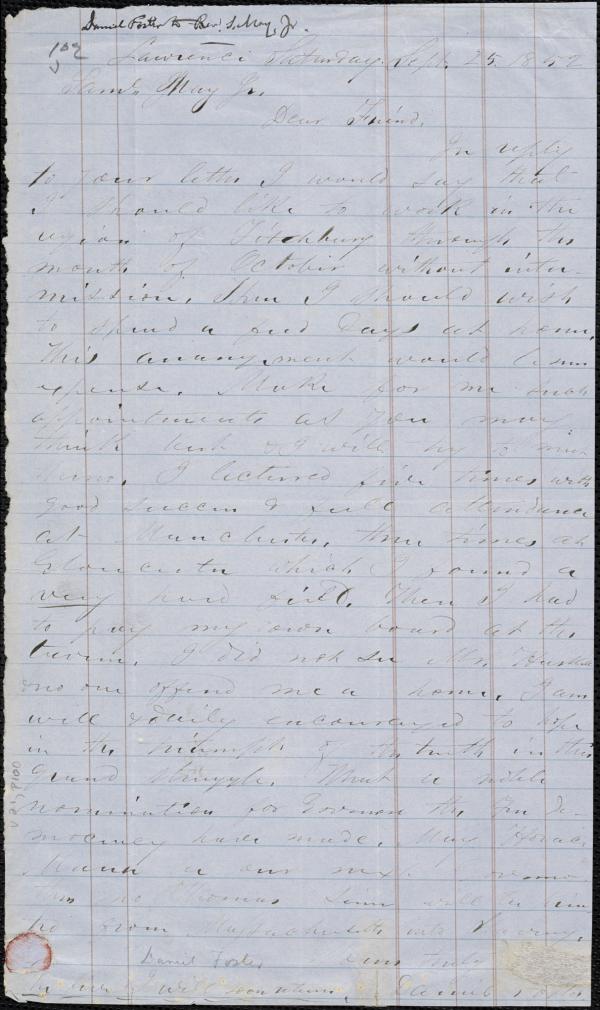 Daniel Foster to Rev. S. May, Jr.
Lawrence Saturday Sept. 25. 1852
Saml. May Jr.
Dear Friend,
In reply
to your letter I would say that
I should like to work in the
region of Fitchburg through the
month of October without inter-
mission. Then I should wish
to spend a few days at home.
This arrangement would lessen
expense. Make for me such
appointments as you may
think best & I will try to meet
them. I lectured five times with
good success & full attendance
at Manchester, three times at
Gloucester which I found a
very hard field. There I had
to pay my own board at the
tavern. I did not see Mr.
& no one offered me a home. I am
well & daily encouraged to hope
in the triumph of the truth in this
grand struggle. What a noble
nomination for Governor the Free De-
mocracy have made. May Horace
Mann be our next Governor
then no Thomas Sims will
go from Massachusetts into slavery.
Daniel Foster
Yours truly
I will soon return. Daniel Foster